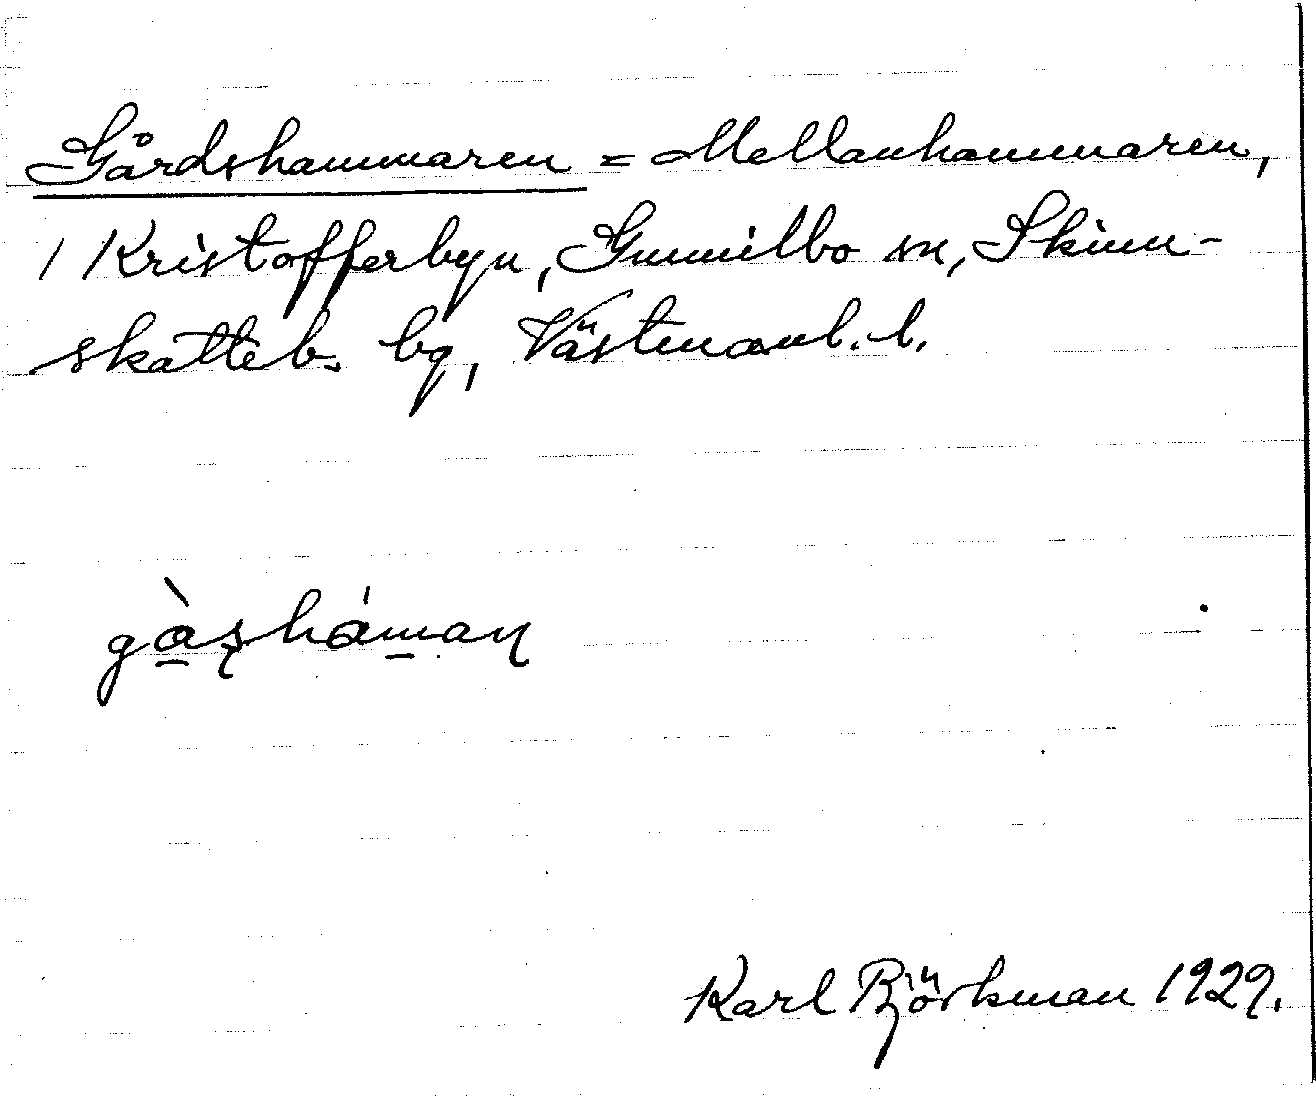 Gårdshammaren = Mellanhammaren,
1 Kristofferbyn, Gunnilbo sn, Skinn-
skatteb. bg, Västmanl. l.
gàʂháman̡
Karl Björkman 1929.